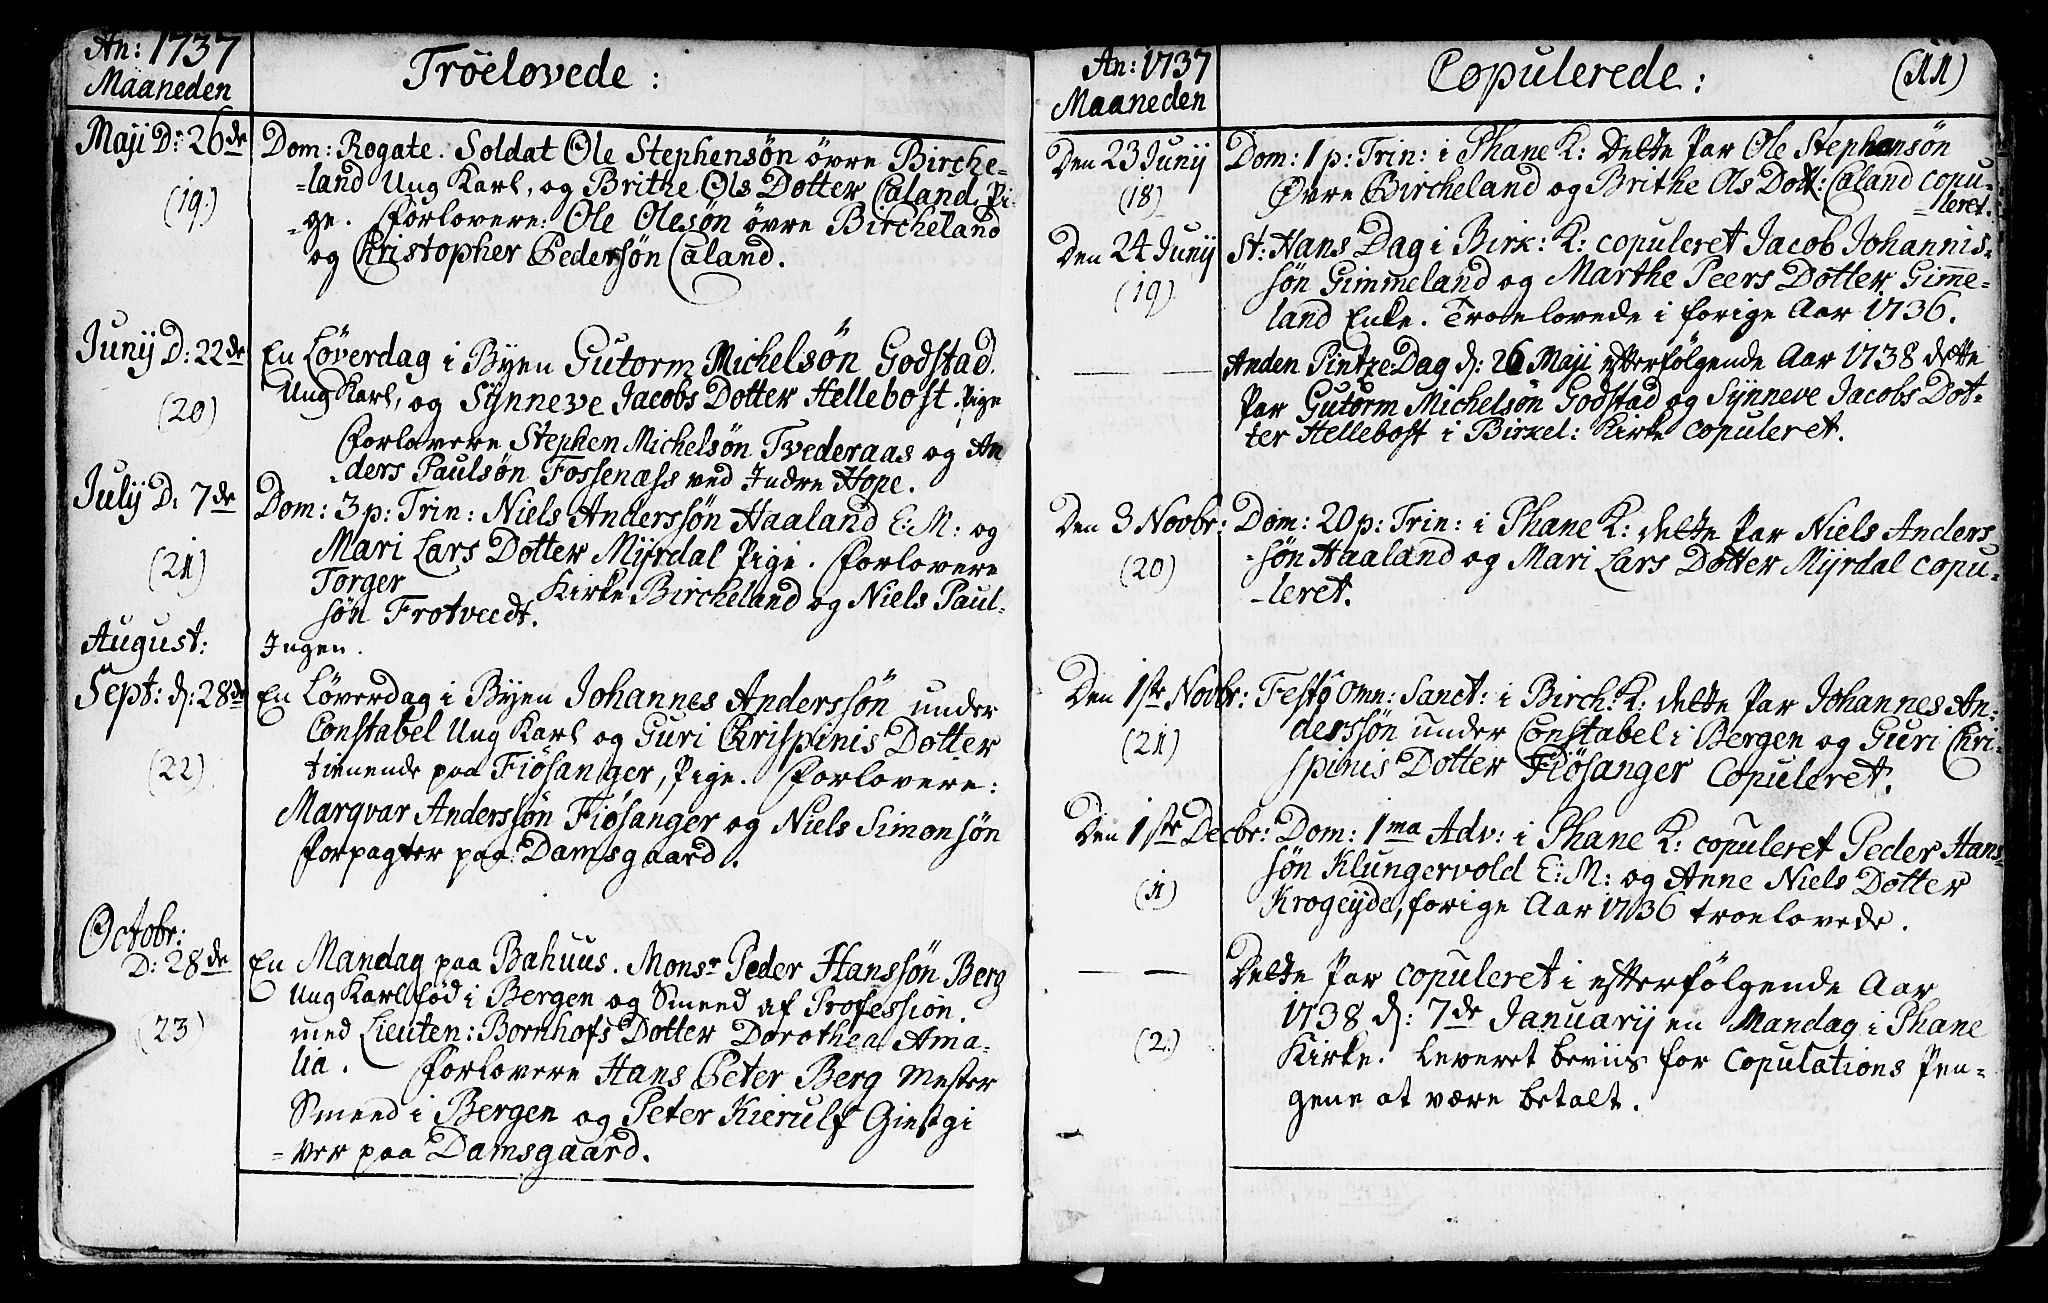 An: 1737
Maaneden
Tröelovede:
Maji D: 26de
(19.)
Dom: Rogate. Soldat Ole Stephensön övre Birche-
-land Ung Karl, og Brithe Ols Dotter Caland, Pi-
-ge. Forlovere: Ole Olesön övre Bircheland
og Christopher Pedersön Caland.
Junij D: 22de
(20)
En Löverdag i Byen Gutorm Michelsön Godstad
Ung Karl, og Synneve Jacobs Dotter Hellebost. Pige
Forlovere Stephen Michelsön Tvederaas og An
-ders Paulsön Fossenæss ved Indre Hope.
Julij D: 7de
(21)
Dom: 3 p: Trin: Niels Anderssön Haaland E: M: og
Mari Lars Dotter Myrdal Pige. Forlovere
Torger Kirke Bircheland og Niels Paul-
sön Frotvedt.
August:
Ingen.
Sept: d: 28de
(22)
En Löverdag i Byen Johannes Anderssön under
Constabel Ung Karl og Guri Chrispinis Dotter
tienende paa Fiösanger, Pige. Forlovere:
Marqvar Anderssön Fiösanger og Niels Simonsön
Forpagter paa Damsgaard.
Octobr:
D: 28de
(23)
En Mandag paa Bahuus. Monsr Peder Hanssön Berg
Ung Karl föd i Bergen og Smeed af Profession.
med Lieuten: Bornhofs Dotter Dorothea Ama-
lia. Forlovere Hans Peter Berg Mester
Smeed i Bergen og Peter Kierulf Giestgi
-ver paa Damsgaard.
An: 1737
Maaneden
Copulerede:
(11)
Den 23 Junij
(18)
Dom: 1 p: Trin: i Phane K: dette Par Ole Stephansön
Övre Bircheland og Brithe Ols Dott: Caland copu-
-leret.
Den 24 Junij
(19)
St: Hans Dag i Birk: K: copuleret Jacob Johannis-
sön Gimmeland og Marthe Peers Dotter Gimme-
land Enke. Troelovede i forige Aar 1736.
Anden Pintze Dag d: 26 Maji efterfölgende Aar 1738 dette
Par Gutorm Michelsön Godstad og Synneve Jacobs Dot-
ter Hellebost i Birkel: Kirke copuleret.
Den 3 Novbr:
(20)
Dom: 20 p: Trin: i Phane K: dette Par Niels Anders
-sön Haaland og Mari Lars Dotter Myrdal copu-
-leret.
Den 1ste Novbr:
(21)
Festo Omn: Sanct: i Birch: K: dette Par Johannes An-
derssön under Constabel i Bergen og Guri Chri-
spinis Dotter Fiösanger Copuleret.
Den 1ste Decbr:
(1)
Dom: 1ma Adv: i Phane K: copuleret Peder Hans-
sön Klungervold E: M: og Anne Niels Dotter
Krogeyde, forige Aar 1736 troelovede.
(2.)
Dette Par copuleret i efterfölgende Aar
1738 d: 7de Januarij en Mandag i Phane
Kirke. Leveret beviis for Copulations Pen-
gene at være betalt.